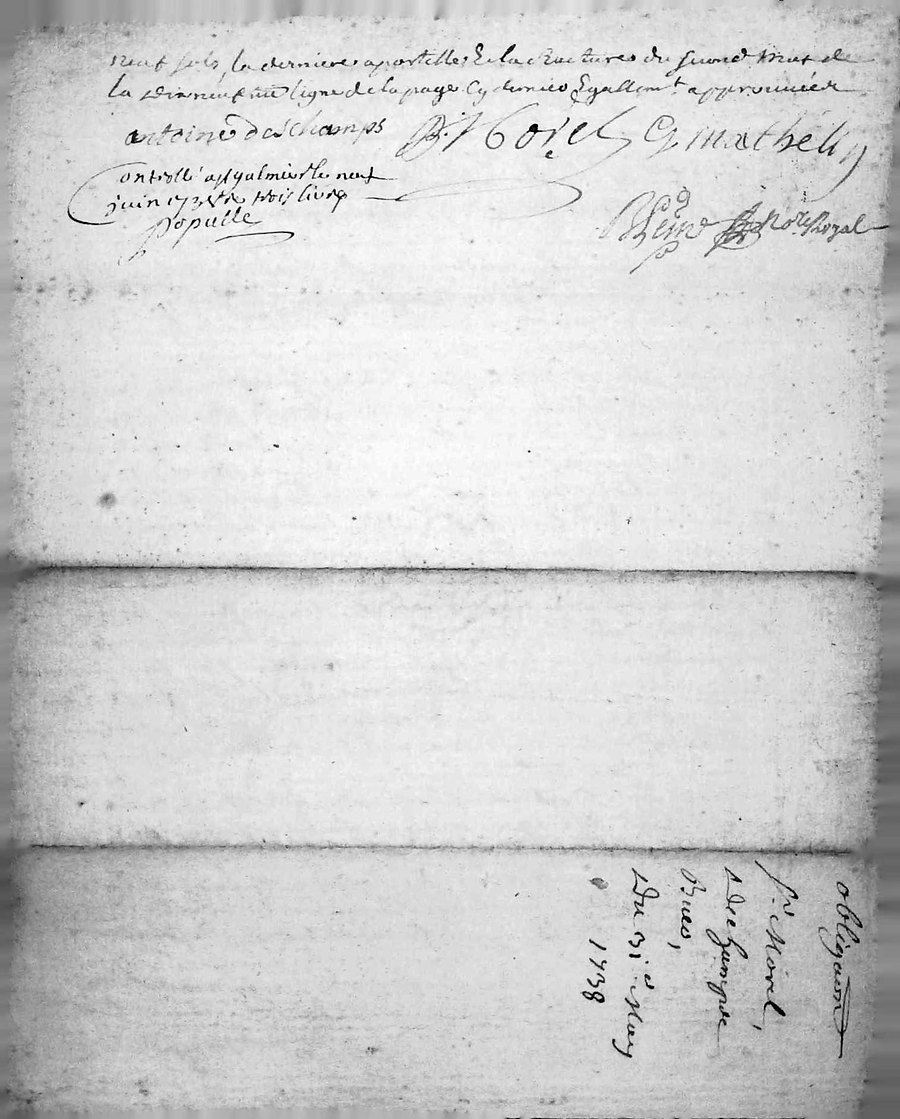 neuf sols, la derniere apostille & la Ratures du second mot de
la dixneufme ligne de la page Cy derniere Egallemt approuvée
antoine deschamps B. Morel G mathelin
Controllé a St galmier le neuf
juin 1738 Re trois livres
Populle
Nore Royal
obligaon
Sr. Morel,
Dechampse
Du 31e May
1738